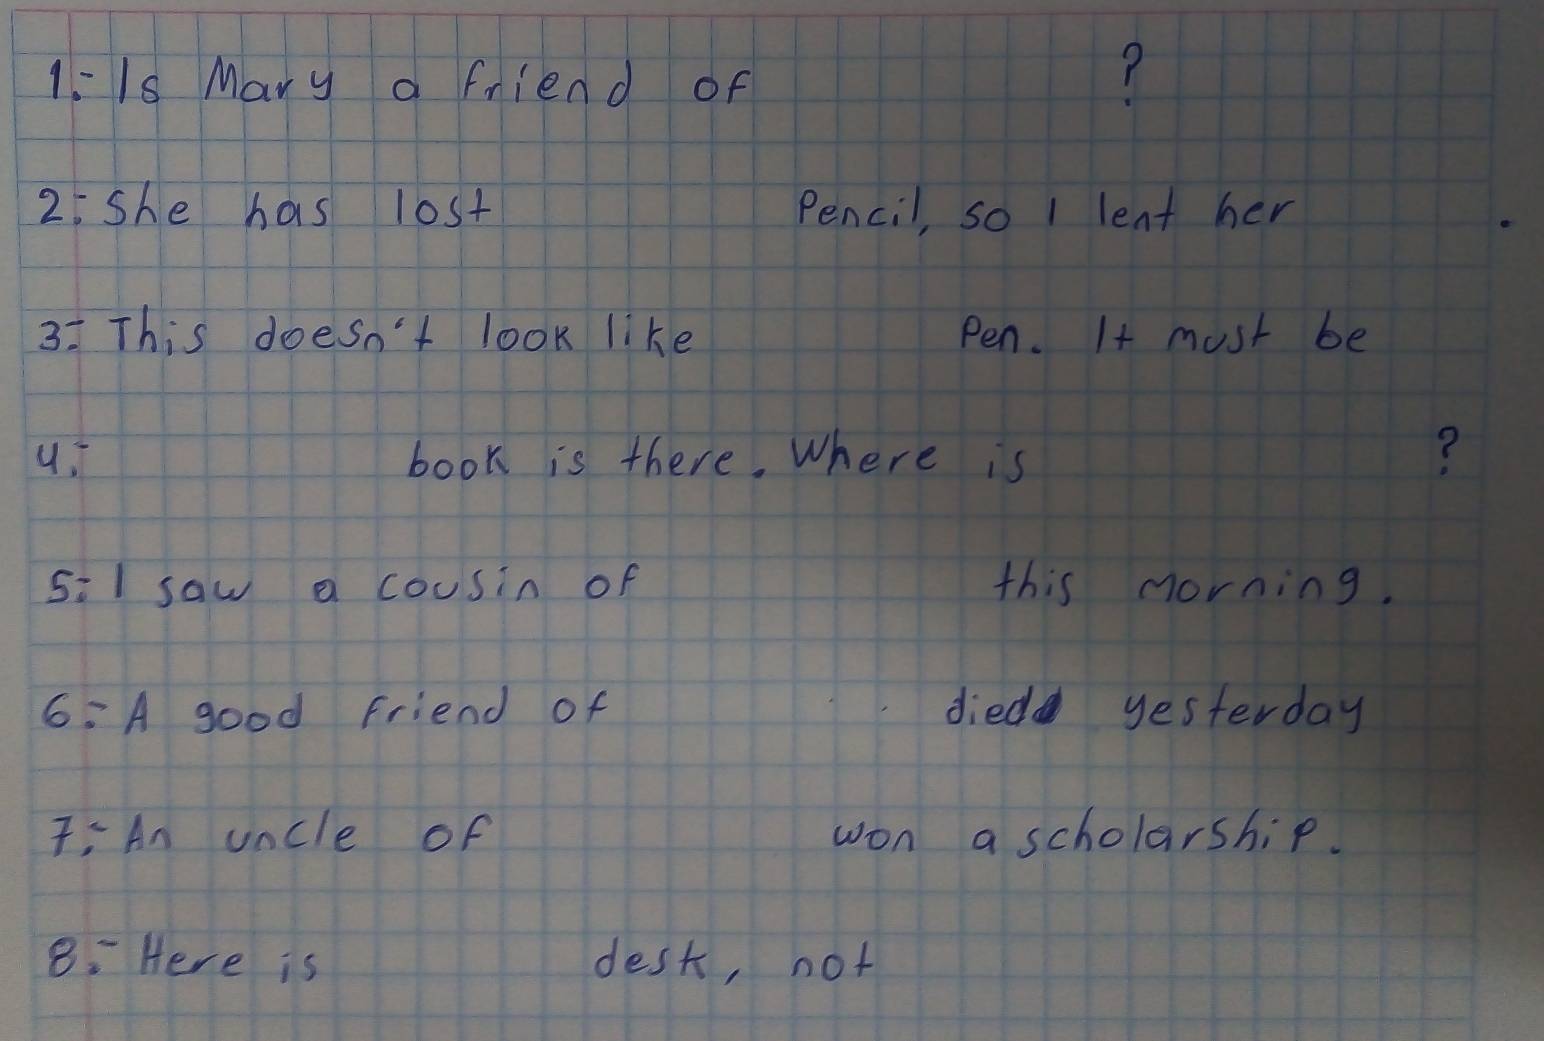 1.- Is Mary a friend of ?
2.- She has lost Pencil, so I lent her .
3.- This doesn't look like Pen. It must be
4.- book is there. Where is ?
5.- I saw a cousin of this morning.
6.- A good friend of died yesterday
7.- An uncle of won a scholarship.
8.- Here is desk, not